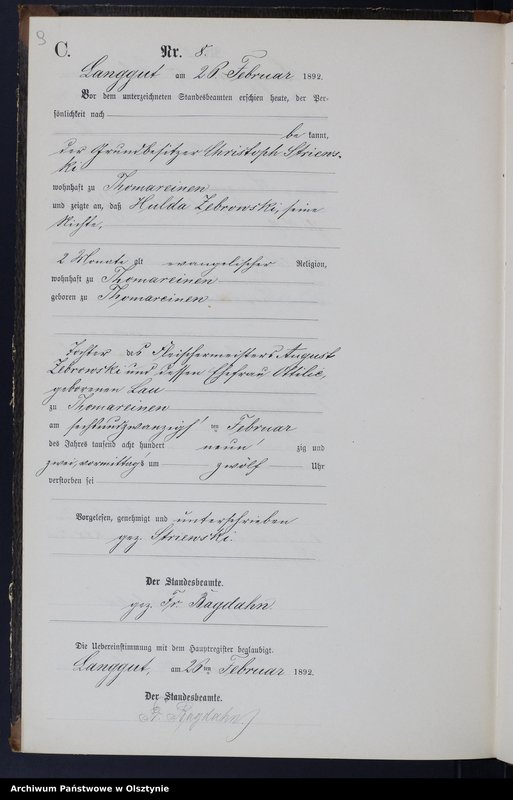 9
C.
Nr. 8.
Langgut am 26 Februar 1892.
Vor dem unterzeichneten Standesbeamten erschien heute, der Per-
sönlichkeit nach
be kannt,
der Grundbesitzer Christoph Striews-
ki
wohnhaft zu Thomareinen
und zeigte an, daß Hulda Zebrowski, seine
Nichte,
2 Monate alt evangelischer Religion,
wohnhaft zu Thomareinen
geboren zu Thomareinen
Tochter des Fleischermeisters August
Zebrowski und dessen Ehefrau Ottilie,
geborenen Lau
zu Thomareinen
am sechsundzwanzigs ten Februar
des Jahres tausend acht hundert neun zig und
zwei, vormittags um zwölf Uhr
verstorben sei
Vorgelesen, genehmigt und unterschrieben
gez. Striewski.
Der Standesbeamte.
gez. Fr. Ragdahn
Die Uebereinstimmung mit dem Hauptregister beglaubigt.
Langgut, am 26ten Februar 1892.
Der Standesbeamte.
Fr. Ragdahn
Archiwum Państwowe w Olsztynie